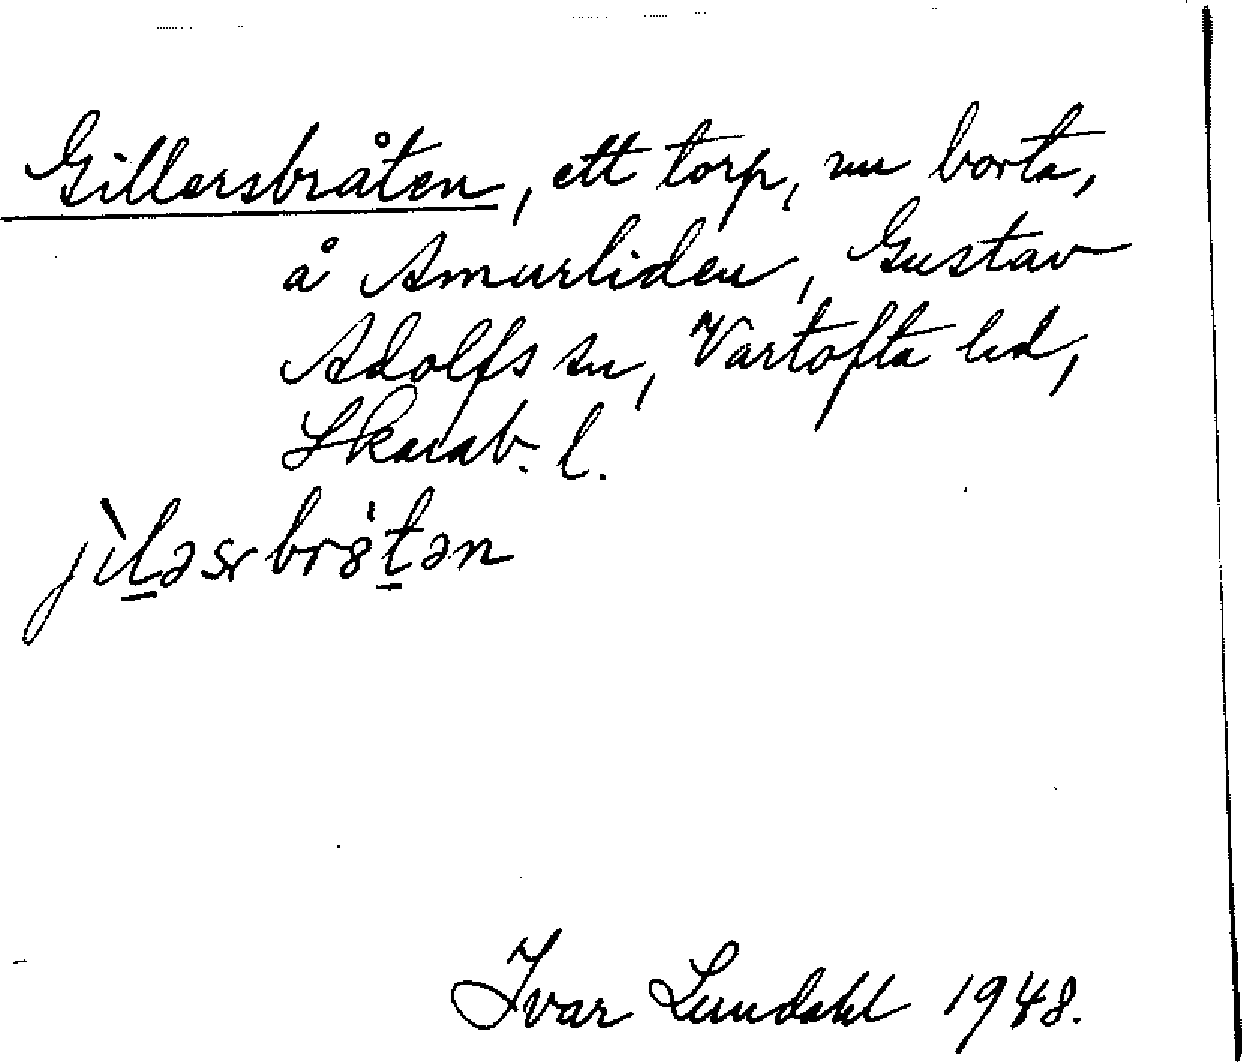 Gillersbråten, ett torp, nu borta,
å Amurliden, Gustav
Adolfs sn, Vartofta hd,
Skarab. l.
jìləsrbrȯtən
Ivar Lundahl 1948.